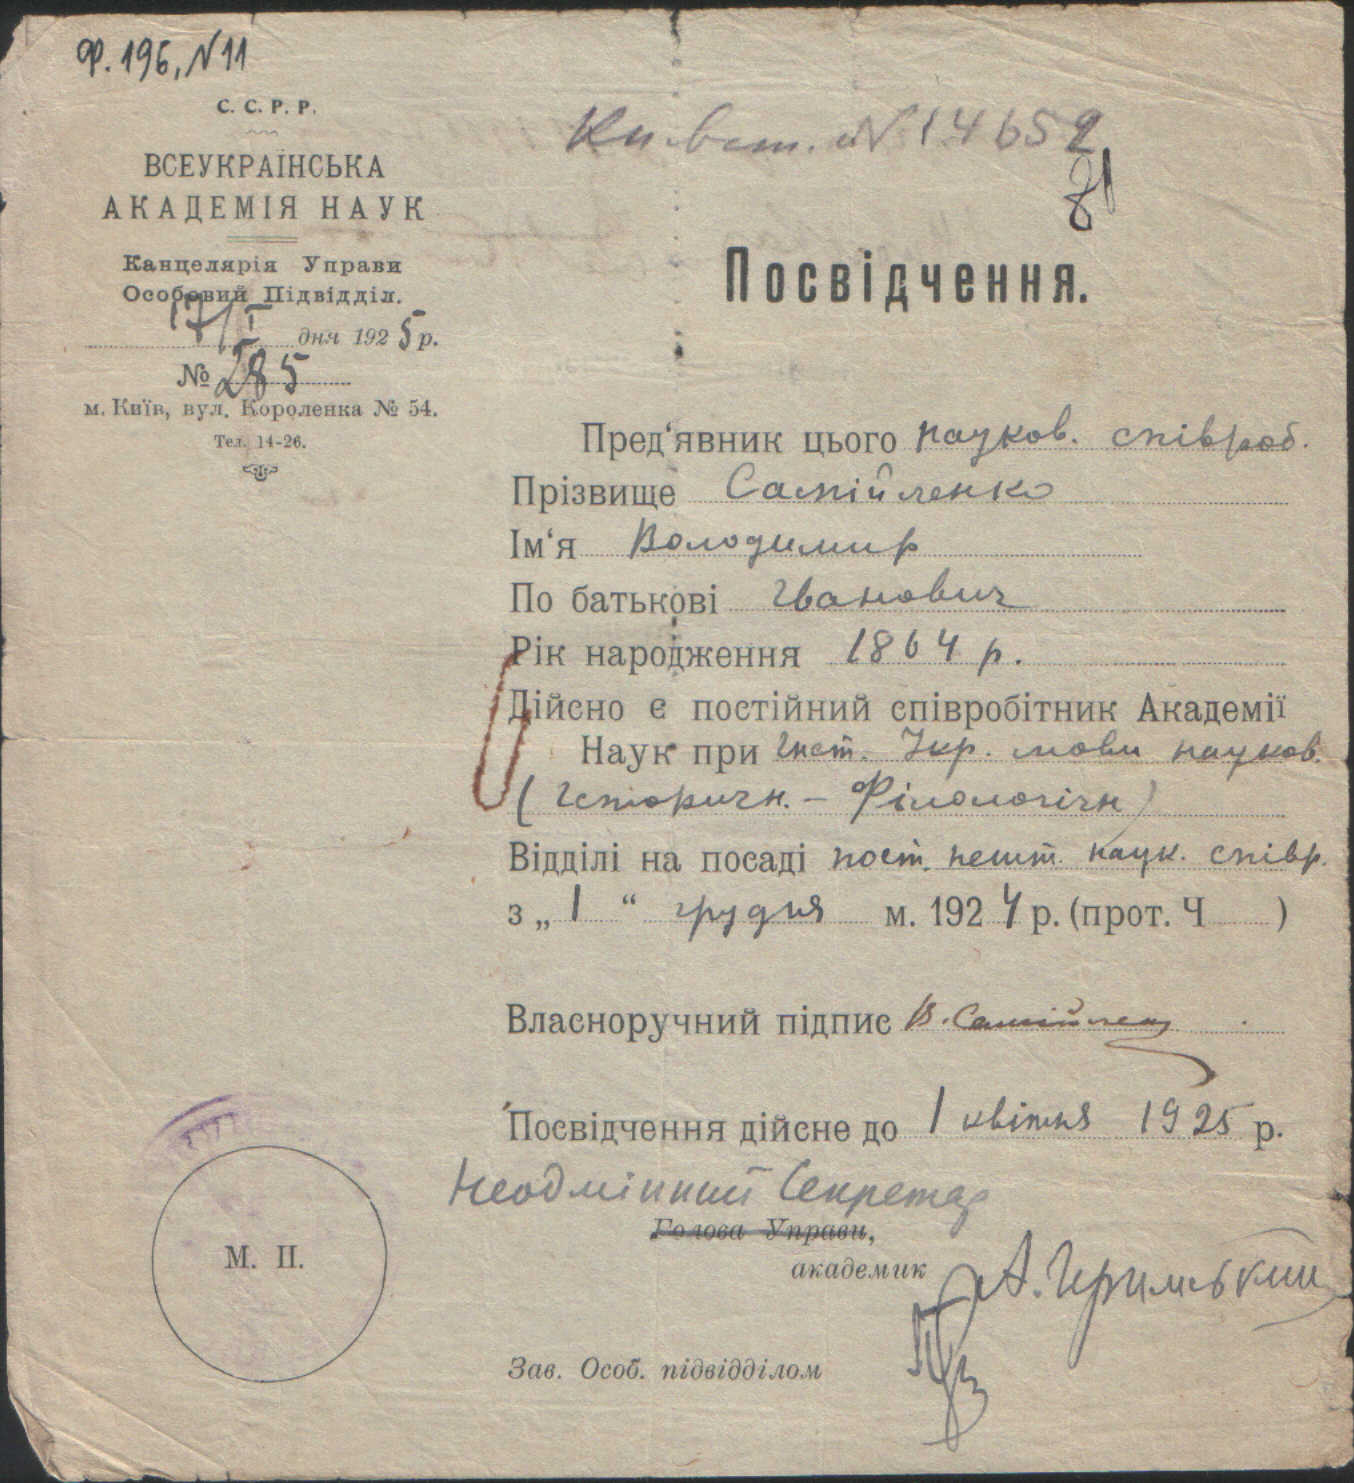 Ф. 196, N 11
С. С. Р. Р.
ВСЕУКРАЇНСЬКА
АКАДЕМІЯ НАУК
Канцелярія Управи
Особовий Підвідділ.
17/I дня 1925 р.
№ 285
м. Київ, вул. Короленка № 54.
Тел. 14-26.
N 14652
81
Посвідчення.
Пред‘явник цього науков. співроб.
Прізвище Самійленко
Ім‘я Володимир
По батькові Іванович
Рік народження 1864 р.
Дійсно є постійний співробітник Академії
Наук при Інст. Укр. мови науков.
(Історичн. – Філологічн)
Відділі на посаді пост. нешт. наук. співр.
з „ 1 “ грудня м. 1924 р. (прот. Ч )
Власноручний підпис В. Самійленк
Посвідчення дійсне до 1 квітня 1925 р.
Неодмінний Секретар
Голова Управи,
академик А. Кримський
М. П.
Зав. Особ. підвідділом